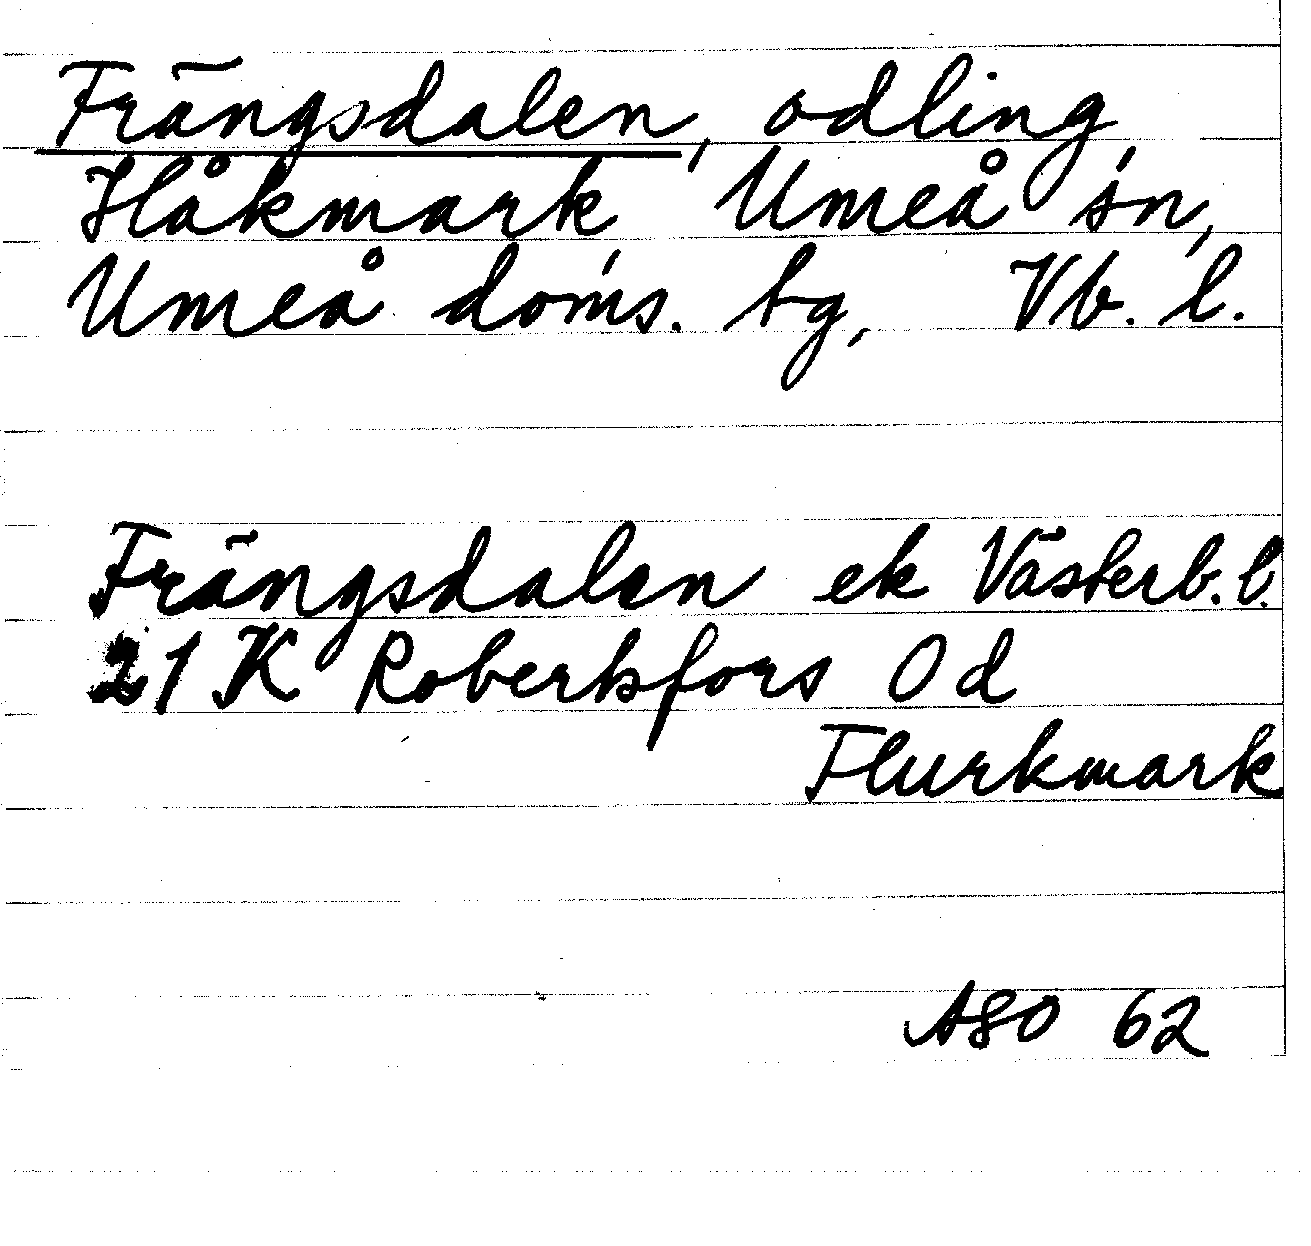 Frängsdalen, odling
Håkmark Umeå sn,
Umeå doms. tg, Vb. l.
Frängsdalen ek Västerb. l.
21 K Robertsfors Od
Flurkmark
ASO 62